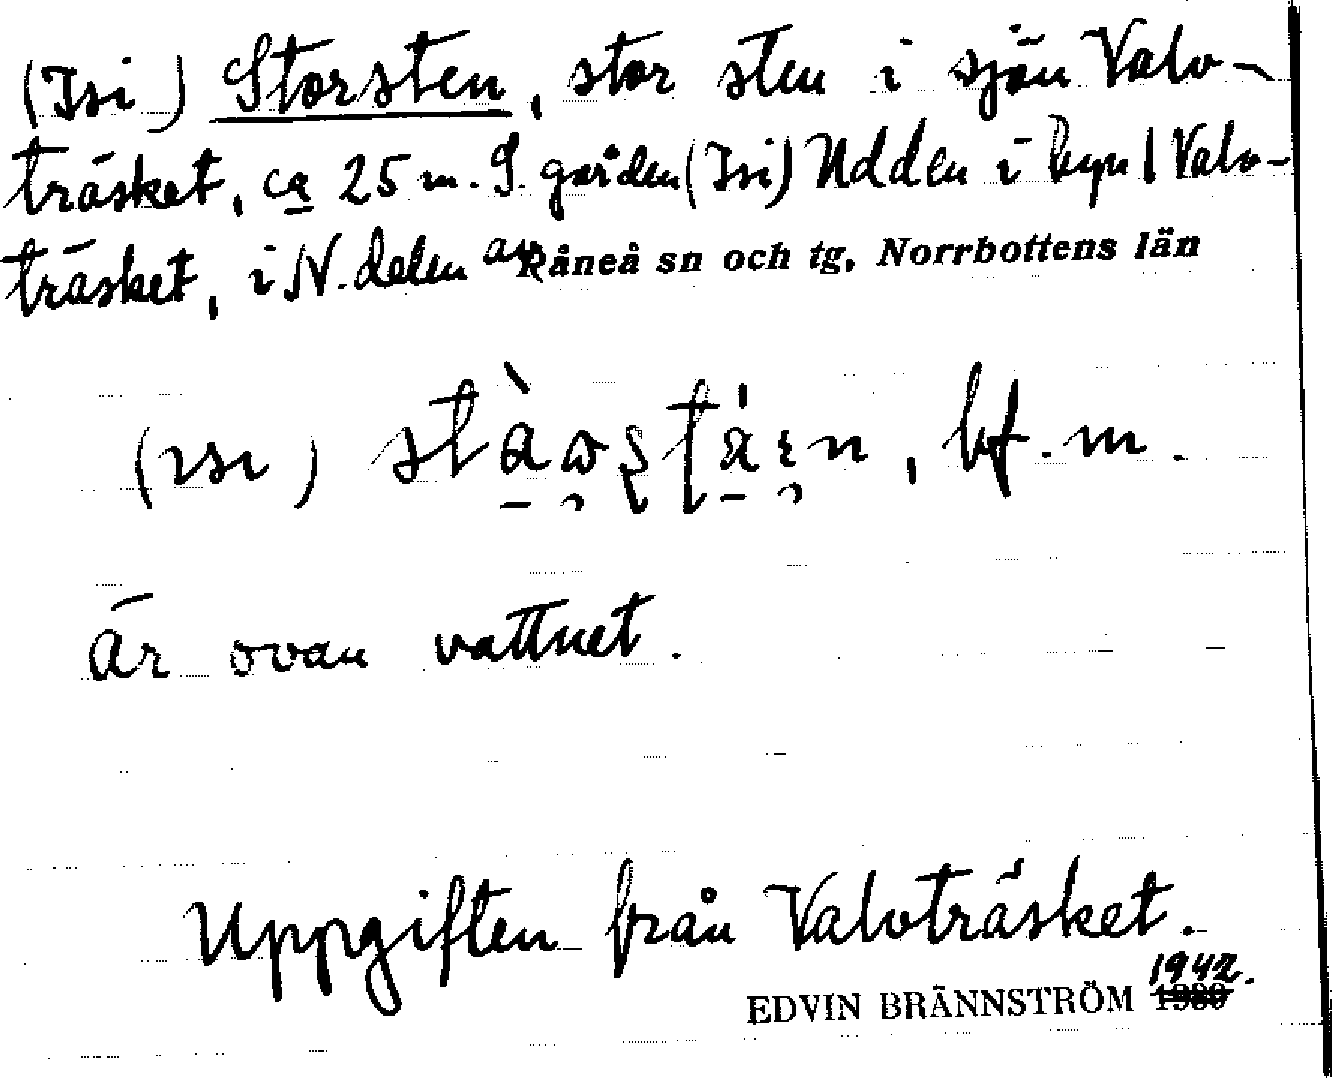 (Isi) Storsten, stor sten i sjön Valv-
träsket, ca 25 m. S. gården (Isi) Udden i byn Valv-
träsket, i N. delen av Råneå sn och tg, Norrbottens län
bf. m.
Är ovan vattnet.
Uppgiften från Valvträsket.
EDVIN BRÄNNSTRÖM 1942.